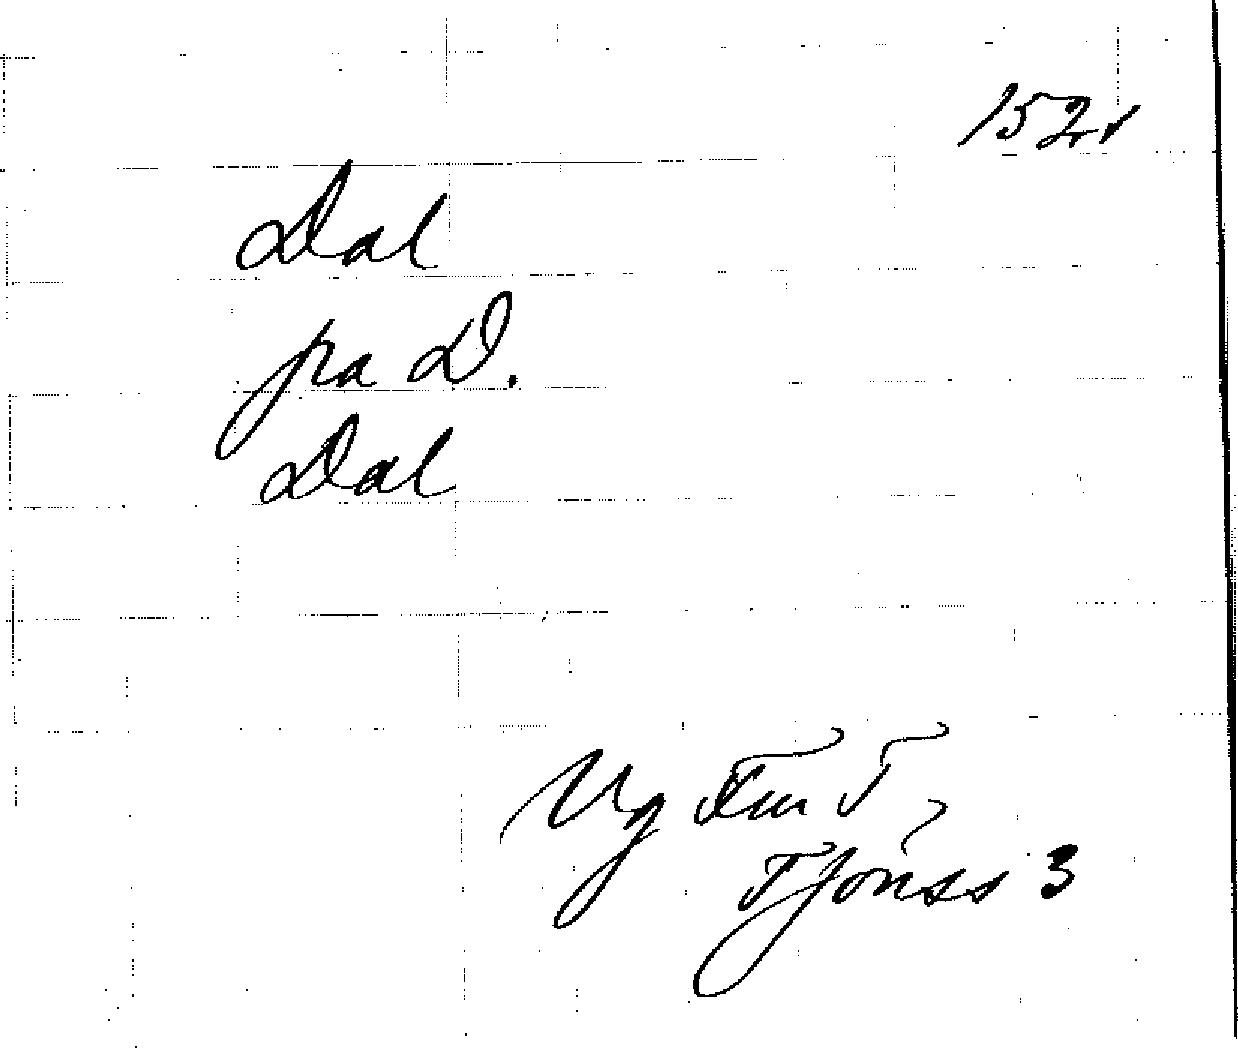 152v
Dal
pra D.
Dal
Ug Fm T
Tjönss 3